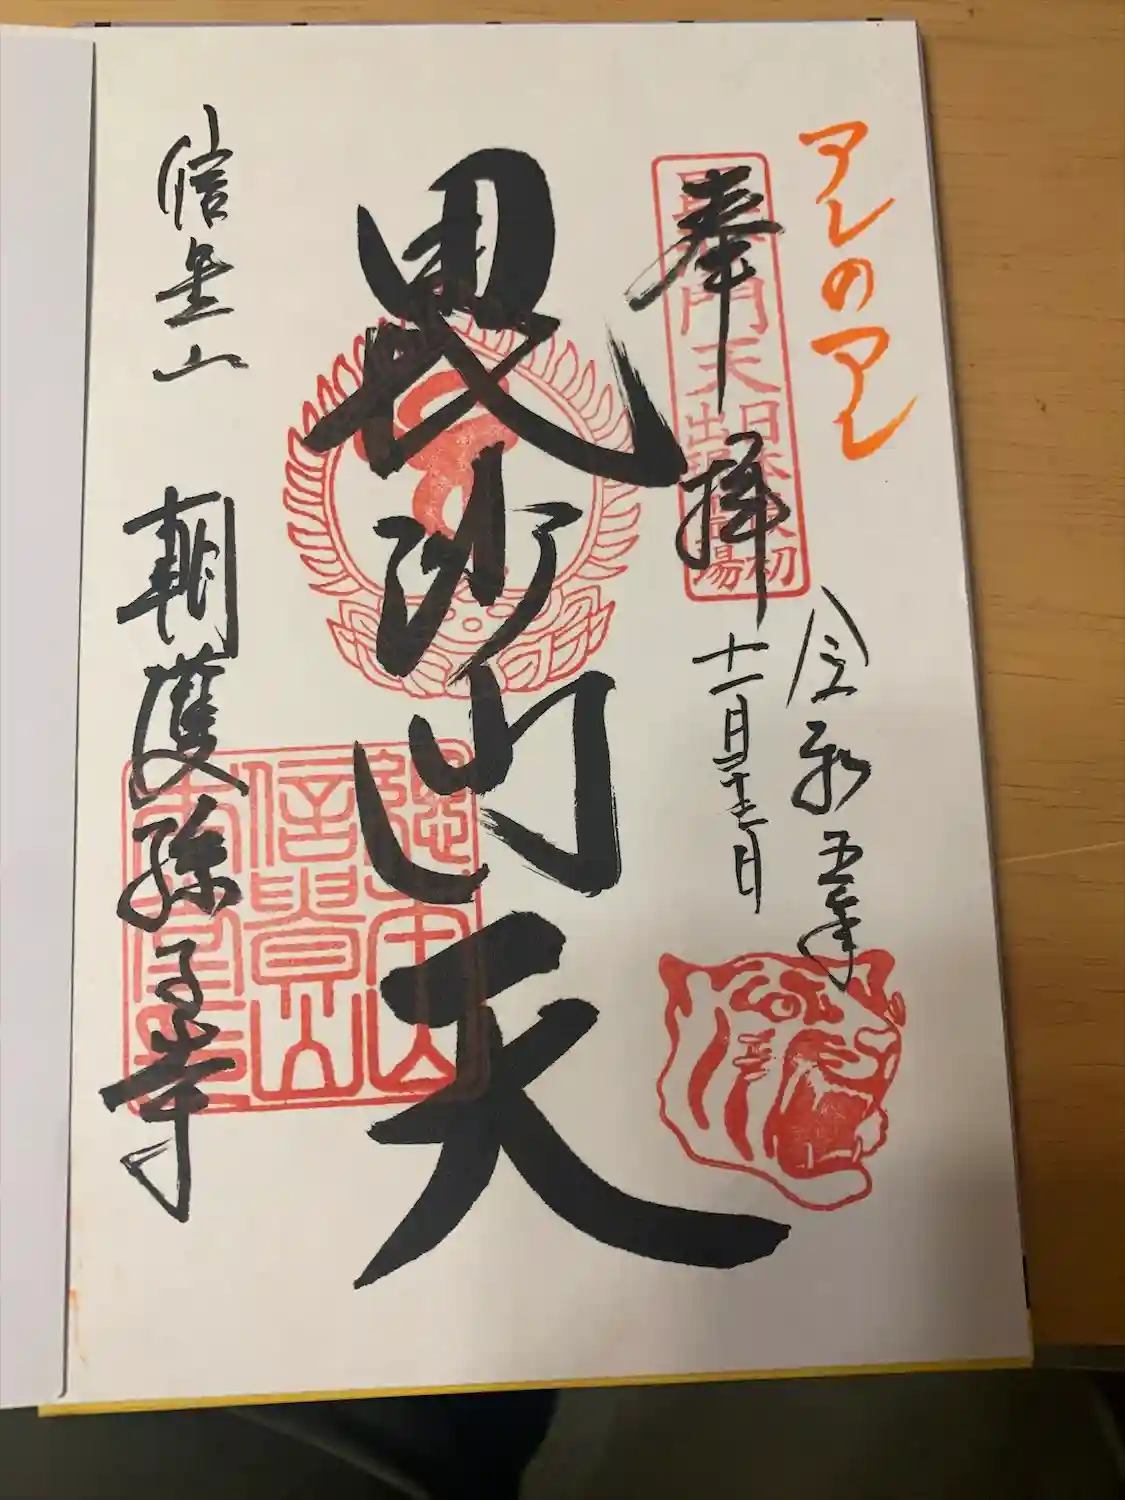 アレのアレ
奉拝
令和五年
十一月二十三日
毘沙門天
毘沙門天
日本最初
出現霊場
信貴山
朝護孫子寺